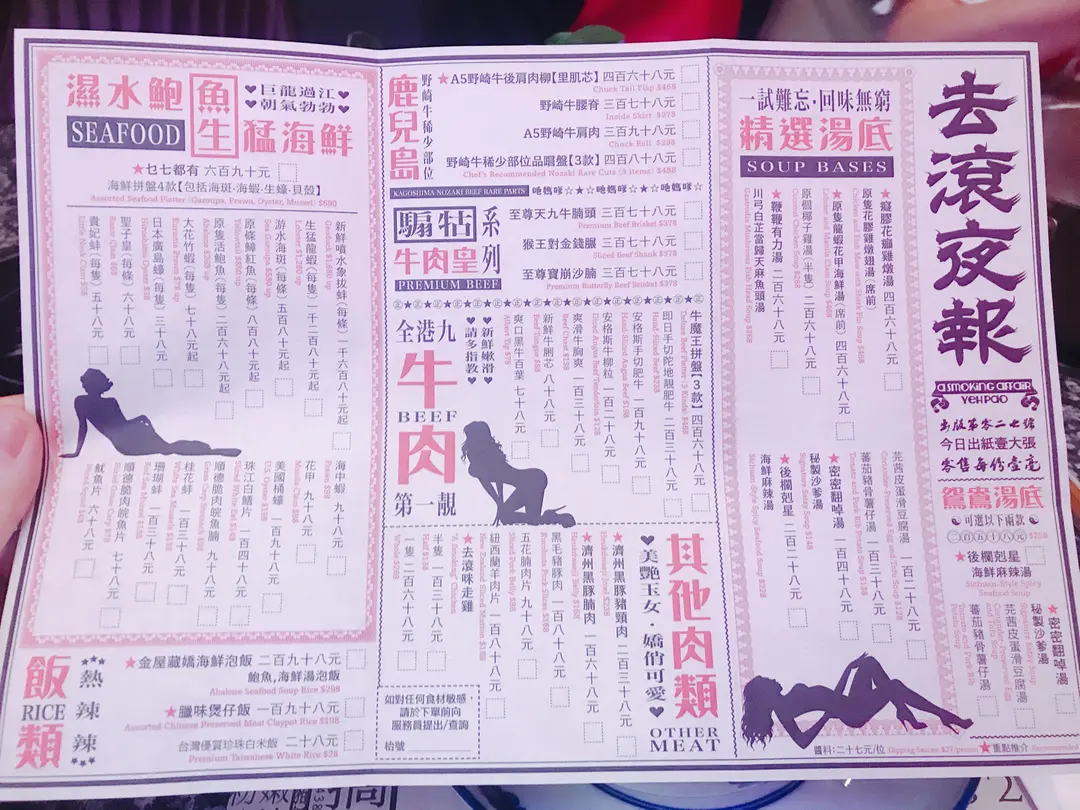 去滾夜報
A SMOKING AFFAIR
YEH PAO
出版第零二七號
今日出紙壹大張
零售每份壹毫
鴛鴦湯底
可選以下兩款
二百五十八元 $258
★後欄剋星
海鮮麻辣湯
Sichuan-Style Spicy
Seafood Soup
★密密翻啅湯
秘製沙爹湯
Signature Satay Soup
芫茜皮蛋滑豆腐湯
蕃茄豬骨薯仔湯
一試難忘·回味無窮
精選湯底
SOUP BASES
★癡膠花癲雞燉湯 四百六十八元
原隻花膠雞燉翅湯(席前)
★原隻龍蝦花甲海鮮湯(席前) 四百六十八元
原個椰子雞湯(半隻) 二百六十八元
★鞭鞭有力湯 二百六十八元
川弓白芷當歸天麻魚頭湯
芫茜皮蛋滑豆腐湯 一百二十八元
蕃茄豬骨薯仔湯 一百三十八元
★密密翻啅湯
秘製沙爹湯 一百四十八元
Signature Satay Soup $148
★後欄剋星 二百二十八元
海鮮麻辣湯
Sichuan-Style Spicy Seafood Soup $228
醬料:二十七元/位 Dipping Sauces $27/person ★重點推介 Recommended
鹿兒島
野崎牛稀少部位
★A5野崎牛後肩肉柳【里肌芯】 四百六十八元
Chuck Tail Flap $468
野崎牛腰脊 三百七十八元
Inside Skirt $378
A5野崎牛肩肉 三百九十八元
Chuck Roll $398
野崎牛稀少部位品嚐盤【3款】 四百八十八元
Chef's Recommended Nozaki Rare Cuts (3 items) $488
KAGOSHIMA NOZAKI BEEF RARE PARTS
吔媽咪☆★☆吔媽咪☆★☆吔媽咪☆
騸牯系列
牛肉皇
PREMIUM BEEF
至尊天九牛腩頭 三百七十八元
Premium Beef Brisket $378
猴王對金錢𦟌 三百七十八元
Sliced Beef Shank $378
至尊寶崩沙腩 三百七十八元
Premium Butterfly Beef Brisket $378
全港九
牛
BEEF
肉
第一靚
♥新鮮嫩滑♥
♥請多指教♥
牛魔王拼盤【3款】 四百六十八元
Deluxe Beef Platter (3 Kinds) $468
即日手切陀地靚肥牛 二百三十八元
安格斯手切肥牛 一百九十八元
Hand-Sliced Angus Beef $198
安格斯牛柳粒 一百二十八元
Diced Angus Beef Tenderloin $128
爽滑牛胸爽 一百三十八元
Beef Chest $138
新鮮牛脷芯 八十八元
Beef Tongue $88
爽口黑牛百葉 七十八元
其他肉類
OTHER
MEAT
♥美艷玉女·嬌俏可愛♥
★濟州黑豚豬頸肉 二百二十八元
★濟州黑豚腩肉 一百六十八元
黑毛豬豚肉 一百八十八元
五花腩肉片 九十八元
Sliced Pork Belly $98
紐西蘭羊肉片 一百八十八元
New Zealand Sliced Mutton $188
★去滾咪走雞
"A Smoking" Chicken
半隻 一百三十八元
Half $138
一隻 二百六十八元
Whole $268
如對任何食材敏感,
請於下單前向
服務員提出/查詢
枱號
濕水鮑魚生猛海鮮
SEAFOOD
♥巨龍過江♥
♥朝氣勃勃♥
★乜七都有 六百九十元
海鮮拼盤4款【包括海斑·海蝦·生蠔·貝殼】
Assorted Seafood Platter (Garoupa, Prawn, Oyster, Mussel) $690
新鮮噴水象拔蚌(每條) 一千六百八十元起
Geoduck $1,680 up
生猛龍蝦(每隻) 一千二百八十元起
Lobster $1,280 up
游水海斑(每條) 五百八十元起
Sea Garoupa $580 up
原條鱆紅魚(每條) 八百八十元起
原隻活鮑魚(每隻) 二百六十八元起
Abalone $268 up
大花竹蝦(每隻) 七十八元起
Kuruma Prawn $78 up
日本廣島蠔(每隻) 三十八元
Hiroshima Oyster $38
聖子皇(每條) 六十八元
Razor Clam $68
貴妃蚌(每隻) 五十八元
海中蝦 九十八元
Prawn $98
花甲 九十八元
Manila Clam $98
美國桶蠔 一百二十八元
U.S. Oyster $128
珠江白鱔片 一百四十八元
順德脆肉皖腩 一百四十八元
桂花蚌 一百三十八元
White Sea Mussel $138
珊瑚蚌 一百三十八元
Red Sea Mussel $138
順德脆肉皖魚片 七十八元
魷魚片 六十八元
飯類
RICE
熱辣辣
★金屋藏嬌海鮮泡飯 二百九十八元
鮑魚,海鮮湯泡飯
Abalone Seafood Soup Rice $298
★臘味煲仔飯 一百九十八元
Assorted Chinese Preserved Meat Claypot Rice $198
台灣優質珍珠白米飯 二十八元
Premium Taiwanese White Rice $28